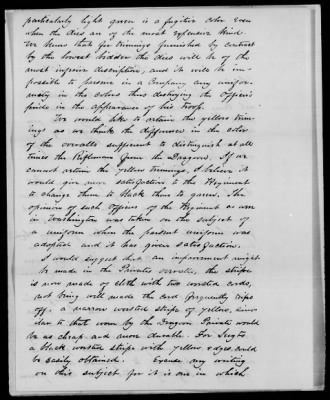 particularly light green is a fugitive color even
when the dies are of the most expensive kind.
We know that for trimmings furnished by contract
by the lowest bidder the dies will be of the
most inferior description, and it will be im-
possible to preserve in a Company any unifor-
mity in the colors thus destroying the Officers
pride in the appearance of his troop.
We would like to retain the yellow trim-
ings as we think the difference in the color
of the overalls sufficient to distinguish at all
times the Rifleman from the Dragoon. If we
cannot retain the yellow trimmings, I believe it
would give more satisfaction to the Regiment
to change them to black than to green. The
opinion of such officers of the Regiment as were
in Washington was taken on the subject of
a uniform when the present uniform was
adopted and it has given satisfaction.
I would suggest that an improvement might
be made in the Privates overalls, the stripe
is now made of cloth with two worsted cords,
not being well made the cord frequently rips
off. a narrow worsted stripe of yellow, simi-
lar to that worn by the Dragoon Private would
be as cheap and more durable. For Sergts
a black worsted stripe with yellow edges could
be easily obtained. Excuse my writing
on this subject for it is one in which